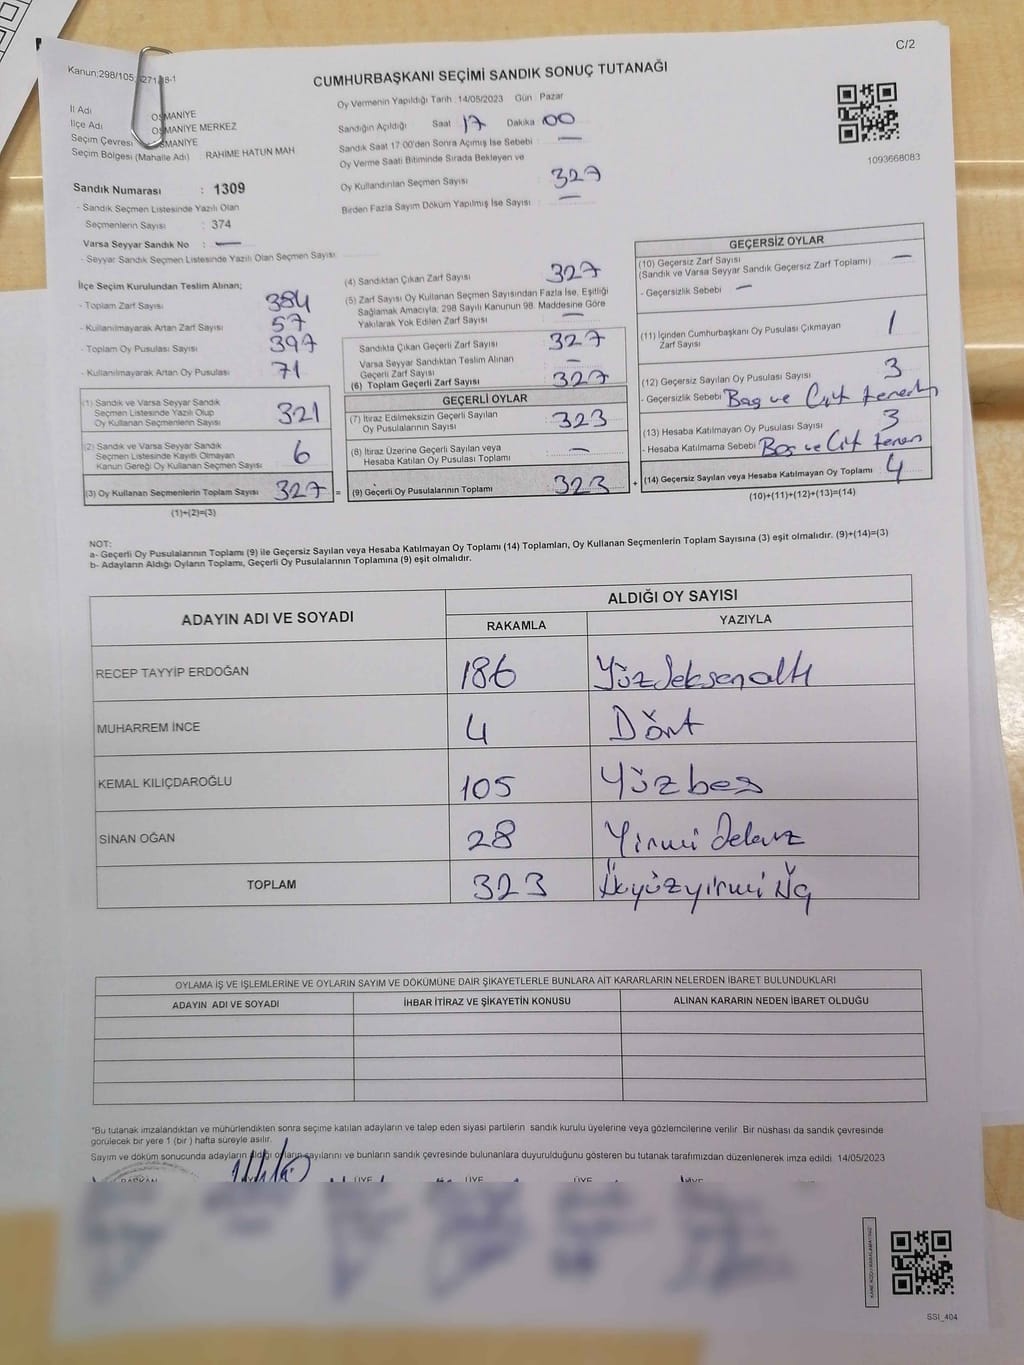 C/2
Kanun;298/105,
CUMHURBAŞKANI SEÇİMİ SANDIK SONUÇ TUTANAĞI
İl Adı OSMANİYE
İlçe Adı OSMANİYE MERKEZ
Seçim Çevresi OSMANİYE
Seçim Bölgesi (Mahalle Adı) RAHİME HATUN MAH
Sandık Numarası : 1309
- Sandık Seçmen Listesinde Yazılı Olan
Seçmenlerin Sayısı : 374
Varsa Seyyar Sandık No : —
- Seyyar Sandık Seçmen Listesinde Yazılı Olan Seçmen Sayısı:
Oy Vermenin Yapıldığı Tarih :14/05/2023 Gün : Pazar
Sandığın Açıldığı Saat 17 Dakika 00
Sandık Saat 17:00'den Sonra Açılmış İse Sebebi : —
Oy Verme Saati Bitiminde Sırada Bekleyen ve
Oy Kullandırılan Seçmen Sayısı : 327
Birden Fazla Sayım Döküm Yapılmış İse Sayısı : —
1093668083
İlçe Seçim Kurulundan Teslim Alınan;
- Toplam Zarf Sayısı 384
- Kullanılmayarak Artan Zarf Sayısı 57
- Toplam Oy Pusulası Sayısı 397
- Kullanılmayarak Artan Oy Pusulası 71
(1) Sandık ve Varsa Seyyar Sandık
Seçmen Listesinde Yazılı Olup
Oy Kullanan Seçmenlerin Sayısı 321
(2) Sandık ve Varsa Seyyar Sandık
Seçmen Listesinde Kayıtlı Olmayan
Kanun Gereği Oy Kullanan Seçmen Sayısı 6
(3) Oy Kullanan Seçmenlerin Toplam Sayısı 327 =
(1)+(2)=(3)
(4) Sandıktan Çıkan Zarf Sayısı 327
(5) Zarf Sayısı Oy Kullanan Seçmen Sayısından Fazla İse, Eşitliği
Sağlamak Amacıyla; 298 Sayılı Kanunun 98. Maddesine Göre
Yakılarak Yok Edilen Zarf Sayısı —
Sandıkta Çıkan Geçerli Zarf Sayısı 327
Varsa Seyyar Sandıktan Teslim Alınan
Geçerli Zarf Sayısı —
(6) Toplam Geçerli Zarf Sayısı 327
GEÇERLİ OYLAR
(7) İtiraz Edilmeksizin Geçerli Sayılan
Oy Pusulalarının Sayısı 323
(8) İtiraz Üzerine Geçerli Sayılan veya
Hesaba Katılan Oy Pusulası Toplamı —
(9) Geçerli Oy Pusulalarının Toplamı 323 +
GEÇERSİZ OYLAR
(10) Geçersiz Zarf Sayısı
(Sandık ve Varsa Seyyar Sandık Geçersiz Zarf Toplamı) —
- Geçersizlik Sebebi —
(11) İçinden Cumhurbaşkanı Oy Pusulası Çıkmayan
Zarf Sayısı 1
(12) Geçersiz Sayılan Oy Pusulası Sayısı 3
- Geçersizlik Sebebi Boş ve Çift
(13) Hesaba Katılmayan Oy Pusulası Sayısı 3
- Hesaba Katılmama Sebebi Boş ve Çift
(14) Geçersiz Sayılan veya Hesaba Katılmayan Oy Toplamı 4
(10)+(11)+(12)+(13)=(14)
NOT:
a- Geçerli Oy Pusulalarının Toplamı (9) ile Geçersiz Sayılan veya Hesaba Katılmayan Oy Toplamı (14) Toplamları, Oy Kullanan Seçmenlerin Toplam Sayısına (3) eşit olmalıdır. (9)+(14)=(3)
b- Adayların Aldığı Oyların Toplamı, Geçerli Oy Pusulalarının Toplamına (9) eşit olmalıdır.
ADAYIN ADI VE SOYADI ALDIĞI OY SAYISI
RAKAMLA YAZIYLA
RECEP TAYYİP ERDOĞAN 186 Yüzseksenaltı
MUHARREM İNCE 4 Dört
KEMAL KILIÇDAROĞLU 105 Yüzbeş
SİNAN OĞAN 28 Yirmi
TOPLAM 323 Üçyüzyirmi Üç
OYLAMA İŞ VE İŞLEMLERİNE VE OYLARIN SAYIM VE DÖKÜMÜNE DAİR ŞİKAYETLERLE BUNLARA AİT KARARLARIN NELERDEN İBARET BULUNDUKLARI
ADAYIN ADI VE SOYADI İHBAR İTİRAZ VE ŞİKAYETİN KONUSU ALINAN KARARIN NEDEN İBARET OLDUĞU
*Bu tutanak imzalandıktan ve mühürlendikten sonra seçime katılan adayların ve talep eden siyasi partilerin sandık kurulu üyelerine veya gözlemcilerine verilir. Bir nüshası da sandık çevresinde
görülecek bir yere 1 (bir ) hafta süreyle asılır.
Sayım ve döküm sonucunda adayların aldığı oyların sayılarını ve bunların sandık çevresinde bulunanlara duyurulduğunu gösteren bu tutanak tarafımızdan düzenlenerek imza edildi. 14/05/2023
BAŞKAN ÜYE ÜYE ÜYE
SSI_404